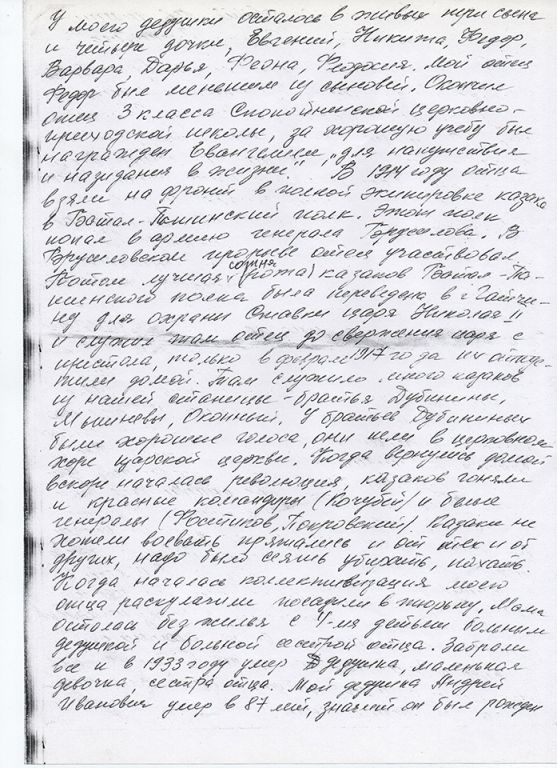 У моего дедушки осталось в живых три сына
и четыре дочки, Евгений, Никита, Федор,
Варвара, Дарья, Феона, Феодосия. Мой отец
Федор был меньшим из сыновей. Окончил
отец 3 класса Спокойненской церковно-
приходской школы, за хорошую учебу был
награжден Евангелием „для напутствия
и назидания в жизни". В 1914 году отца
взяли на фронт в полной экипировке казака
вБотал-Пашинский полк. Этот полк
попал в армию генерала Брусилова. В
Брусиловском прорыве отец участвовал.
Потом лучшая сотня (рота) казаковБотал-Па-
шинского полка была переведена в г. Гатчи-
ну для охраны Ставки царя Николая II
и служил там отец до свержения царя с
престола, только в феврале 1917 го за их отпус-
тили домой. Там служило много казаков
из нашей станицы - братья Дубинины,
Мишневы, Оконный. У братьев Дубининых
были хорошие голоса, они пели в церковном
хоре царской церкви. Когда вернулись домой
вскоре началась революция, казаков гоняли
и красные командиры (Кочубей) и белые
генералы (Фостиков, Покровский). Казаки не
хотели воевать прятались и от тех и от
других, надо было сеять убирать, пахать.
Когда началась коллективизация моего
отца раскулачили посадили в тюрьму. Мама
осталась без жилья с 4-мя детьми больным
дедушкой и больной сестрой отца. Забрали
все и в 1933 году умер дедушка, маленькая
девочка, сестра отца. Мой дедушка Андрей
Иванович умер в 87 лет, значит он был рожден